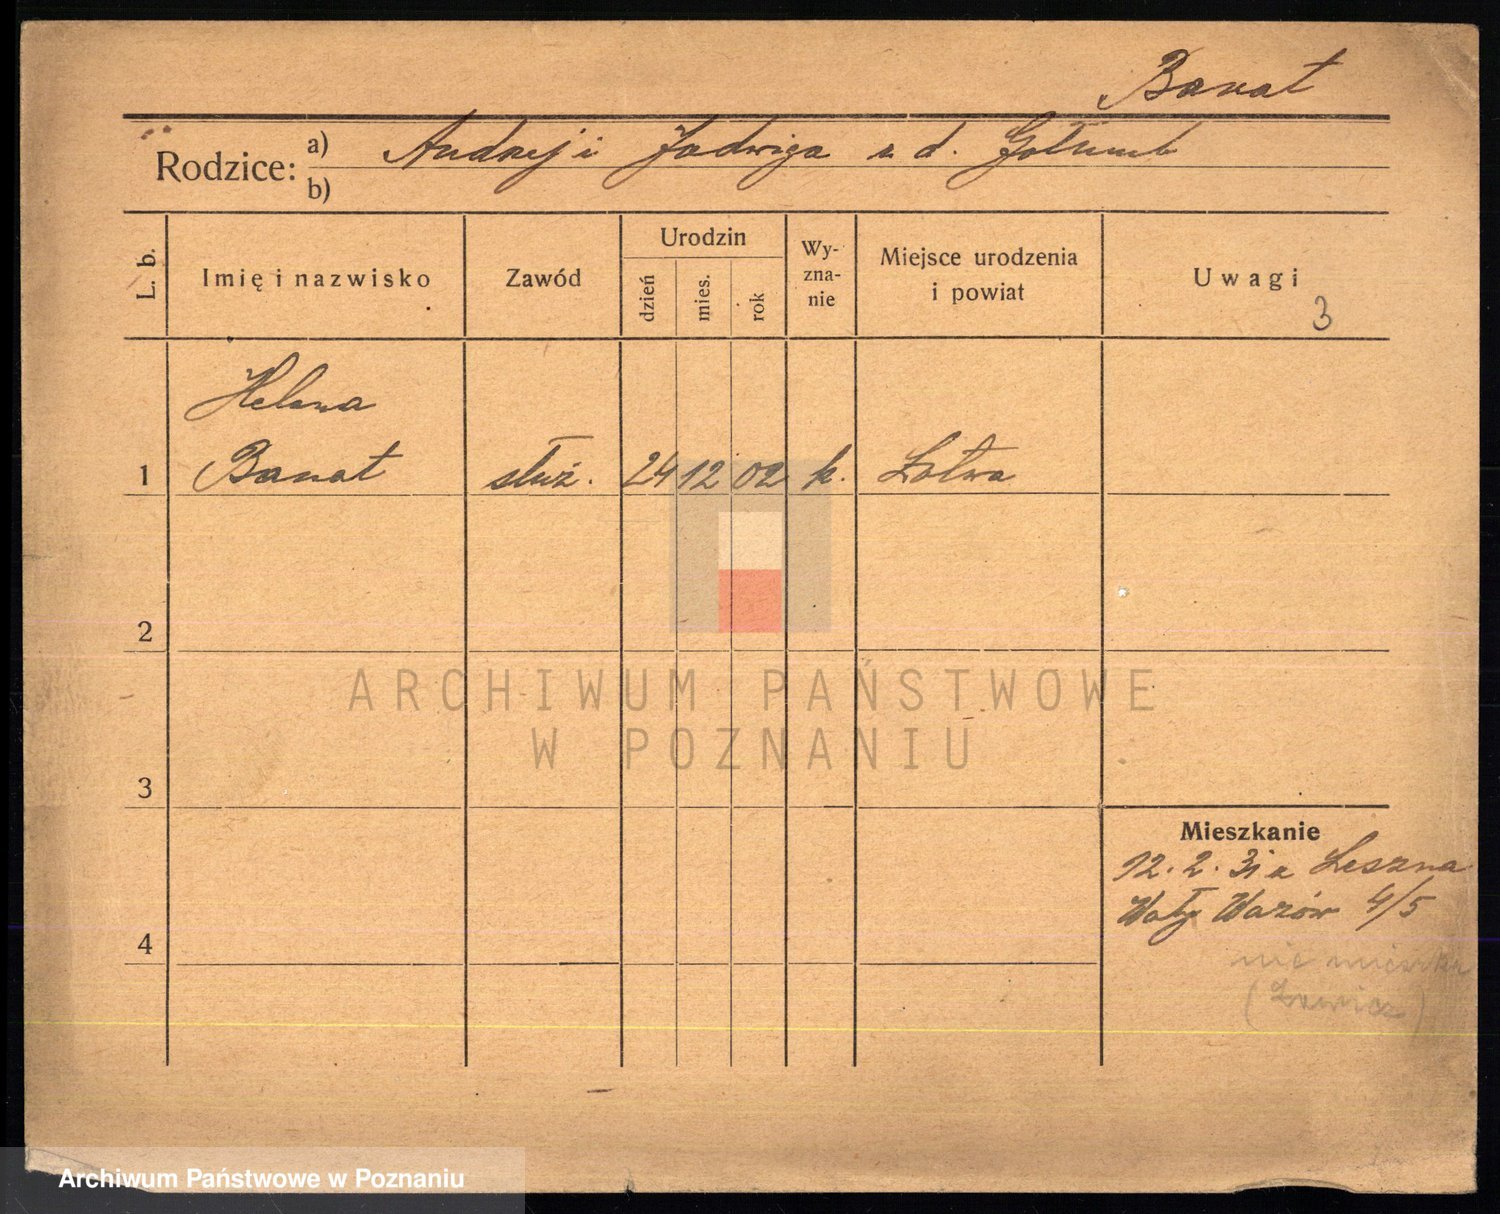 Banat
Rodzice: a) Andrzej i Jadwiga z d. Gołumb
b)
L. b. Imię i nazwisko Zawód Urodzin dzień mies. rok Wy-zna-nie Miejsce urodzenia i powiat Uwagi
3
Helena
1 Banat służ. 24 12 02 k. Łotwa
2
ARCHIWUM PAŃSTWOWE
W POZNANIU
3
Mieszkanie
12. 2. 31 z Leszna
Wały Wazów 4/5
4
nie mieszka
Archiwum Państwowe w Poznaniu